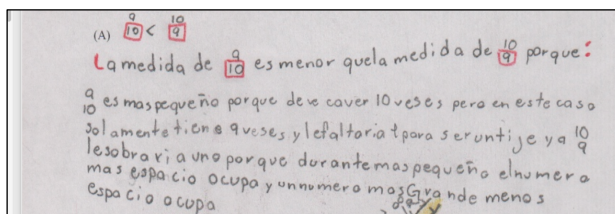 (A) 9/10 < 10/9
La medida de 9/10 es menor quela medida de 10/9 porque:
9/10 es mas pequeño porque deve caver 10 veses pero en este caso
solamente tiene 9 veses y le faltaria 1 para ser un tije y a 10/9
le sobraria uno porque durante mas pequeño el numero
mas espacio ocupa y un numero mas Grande menos
espacio ocupa